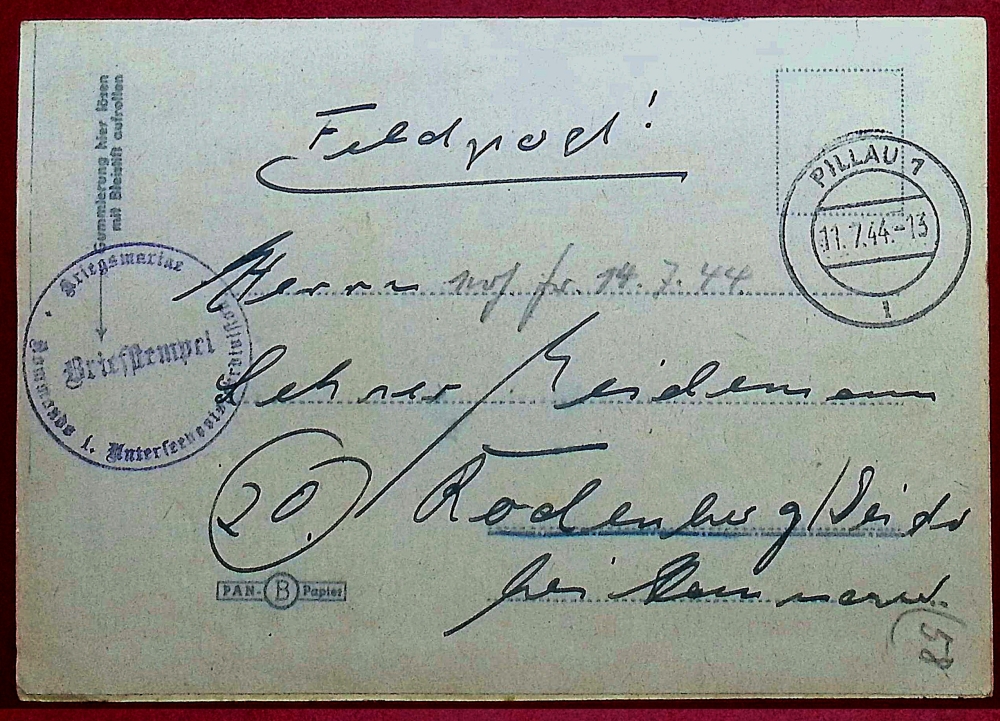 Gummierung hier lösen
mit Bleistift aufrollen
Feldpost!
PILLAU 1
11.7.44.-13
1
Kriegsmarine
Briefstempel
Kommando 1. Unterseebootsdivision
Herrn
14.7.44.
Lehrer Heidemann
20.
Rodenberg/Deister
bei Hannover.
PAN- B Papier
58